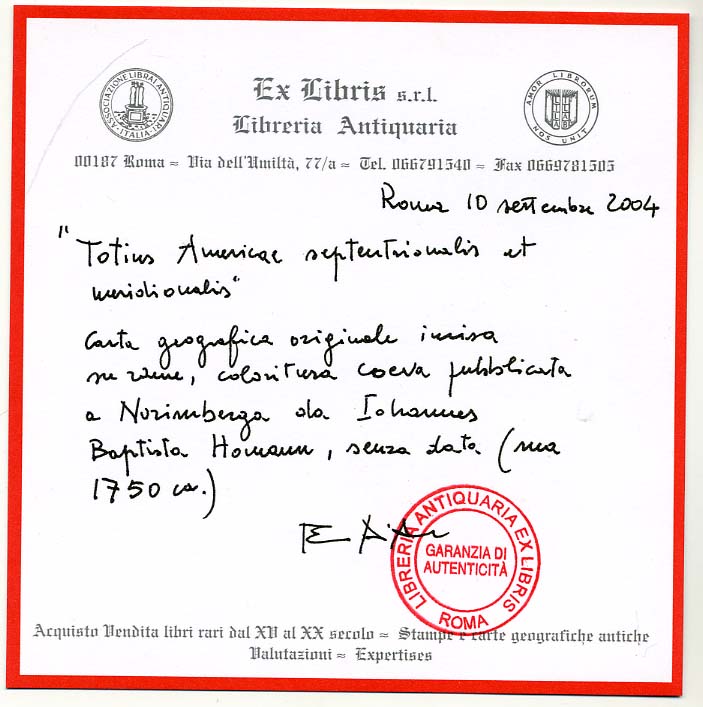 ASSOCIAZIONE LIBRAI ANTIQUARI
ITALIA
AMOR LIBRORUM
NOS UNIT
Ex Libris s.r.l.
Libreria Antiquaria
00187 Roma = Via dell'Umiltà, 77/a = Tel. 066791540 = Fax 0669781505
Roma 10 settembre 2004
"Totius Americae septentrionalis et
meridionalis"
Carta geografica originale incisa
su rame, coloritura coeva pubblicata
a Norimberga da Iohannes
Baptista Homann, senza data (ma
1750 ca.)
LIBRERIA ANTIQUARIA EX LIBRIS
GARANZIA DI
AUTENTICITÀ
ROMA
Acquisto Vendita libri rari dal XV al XX secolo = Stampe e carte geografiche antiche
Valutazioni = Expertises